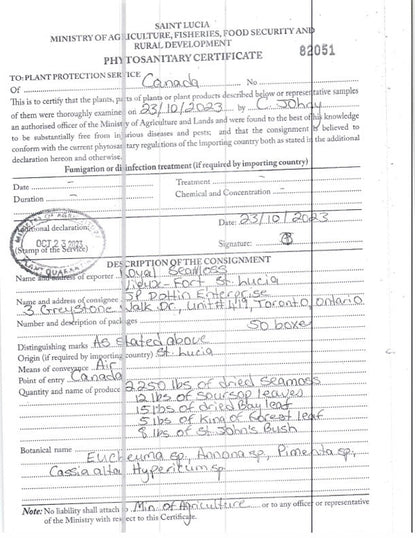 SAINT LUCIA
MINISTRY OF AGRICULTURE, FISHERIES, FOOD SECURITY AND
RURAL DEVELOPMENT
PHYTOSANITARY CERTIFICATE 82051
TO: PLANT PROTECTION SERVICE
Of Canada No
This is to certify that the plants, parts of plants or plant products described below or representative samples
of them were thoroughly examined on 23/10/2023 by C. Johny
an authorised officer of the Ministry of Agriculture and Lands and were found to the best of his knowledge
to be substantially free from injurious diseases and pests; and that the consignment is believed to
conform with the current phytosanitary regulations of the importing country both as stated in the additional
declaration hereon and otherwise.
Fumigation or disinfection treatment (if required by importing country)
Date – Treatment –
Duration – Chemical and Concentration –
Additional declaration: Date: 23/10/2023
OCT 23 2023
(Stamp of the Service) Signature:
PLANT QUARAN
DESCRIPTION OF THE CONSIGNMENT
Name and address of exporter Royal Seamoss
Vieux-Fort, St. Lucia
Name and address of consignee JP Dottin Enterprise
3 Greystone Walk Dr, Unit# 419, Toronto, Ontario
Number and description of packages 50 boxes
Distinguishing marks As stated above
Origin (if required by importing country) St. Lucia
Means of conveyance Air
Point of entry Canada
Quantity and name of produce 2,250 lbs of dried seamoss
12 lbs of soursop leaves
15 lbs of dried Bay leaf
5 lbs of King of Forest leaf
8 lbs of St. John's Bush
Botanical name
Eucheuma sp, Annona sp, Pimenta sp,
Cassia alta, Hypericum sp
Note: No liability shall attach to Min. of Agriculture or to any officer or representative
of the Ministry with respect to this Certificate.